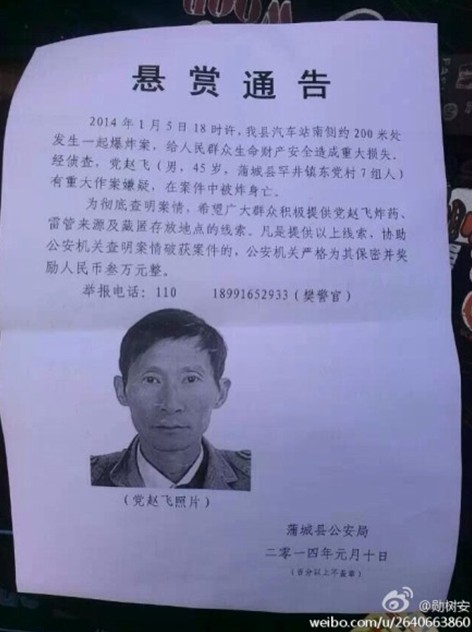 悬赏通告
2014年1月5日18时许，我县汽车站南侧约200米处
发生一起爆炸案，给人民群众生命财产安全造成重大损失。
经侦查，党赵飞（男，45岁，蒲城县罕井镇东党村7组人）
有重大作案嫌疑，在案件中被炸身亡。
为彻底查明案情，希望广大群众积极提供党赵飞炸药、
雷管来源及藏匿存放地点的线索。凡是提供以上线索，协助
公安机关查明案情破获案件的，公安机关严格为其保密并奖
励人民币叁万元整。
举报电话：110 18991652933（樊警官）
（党赵飞照片）
蒲城县公安局
二零一四年元月十日
@勋树安
weibo.com/u/2640663860